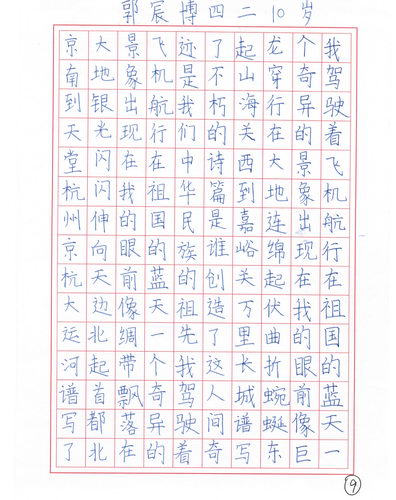 郭宸博四二10岁
我驾驶着飞机航行在祖国的蓝天一
个奇异的景象出现在我的眼前像巨
龙穿行在大地连绵起伏曲折蜿蜒东
起山海关西到嘉峪关万里长城谱写
了不朽的诗篇是谁创造了这人间奇
迹是我们中华民族的祖先我驾驶着
飞机航行在祖国的蓝天一个奇异的
景象出现在我的眼前像绸带飘落在
大地银光闪闪伸向天边北起首都北
京南到天堂杭州京杭大运河谱写了
9